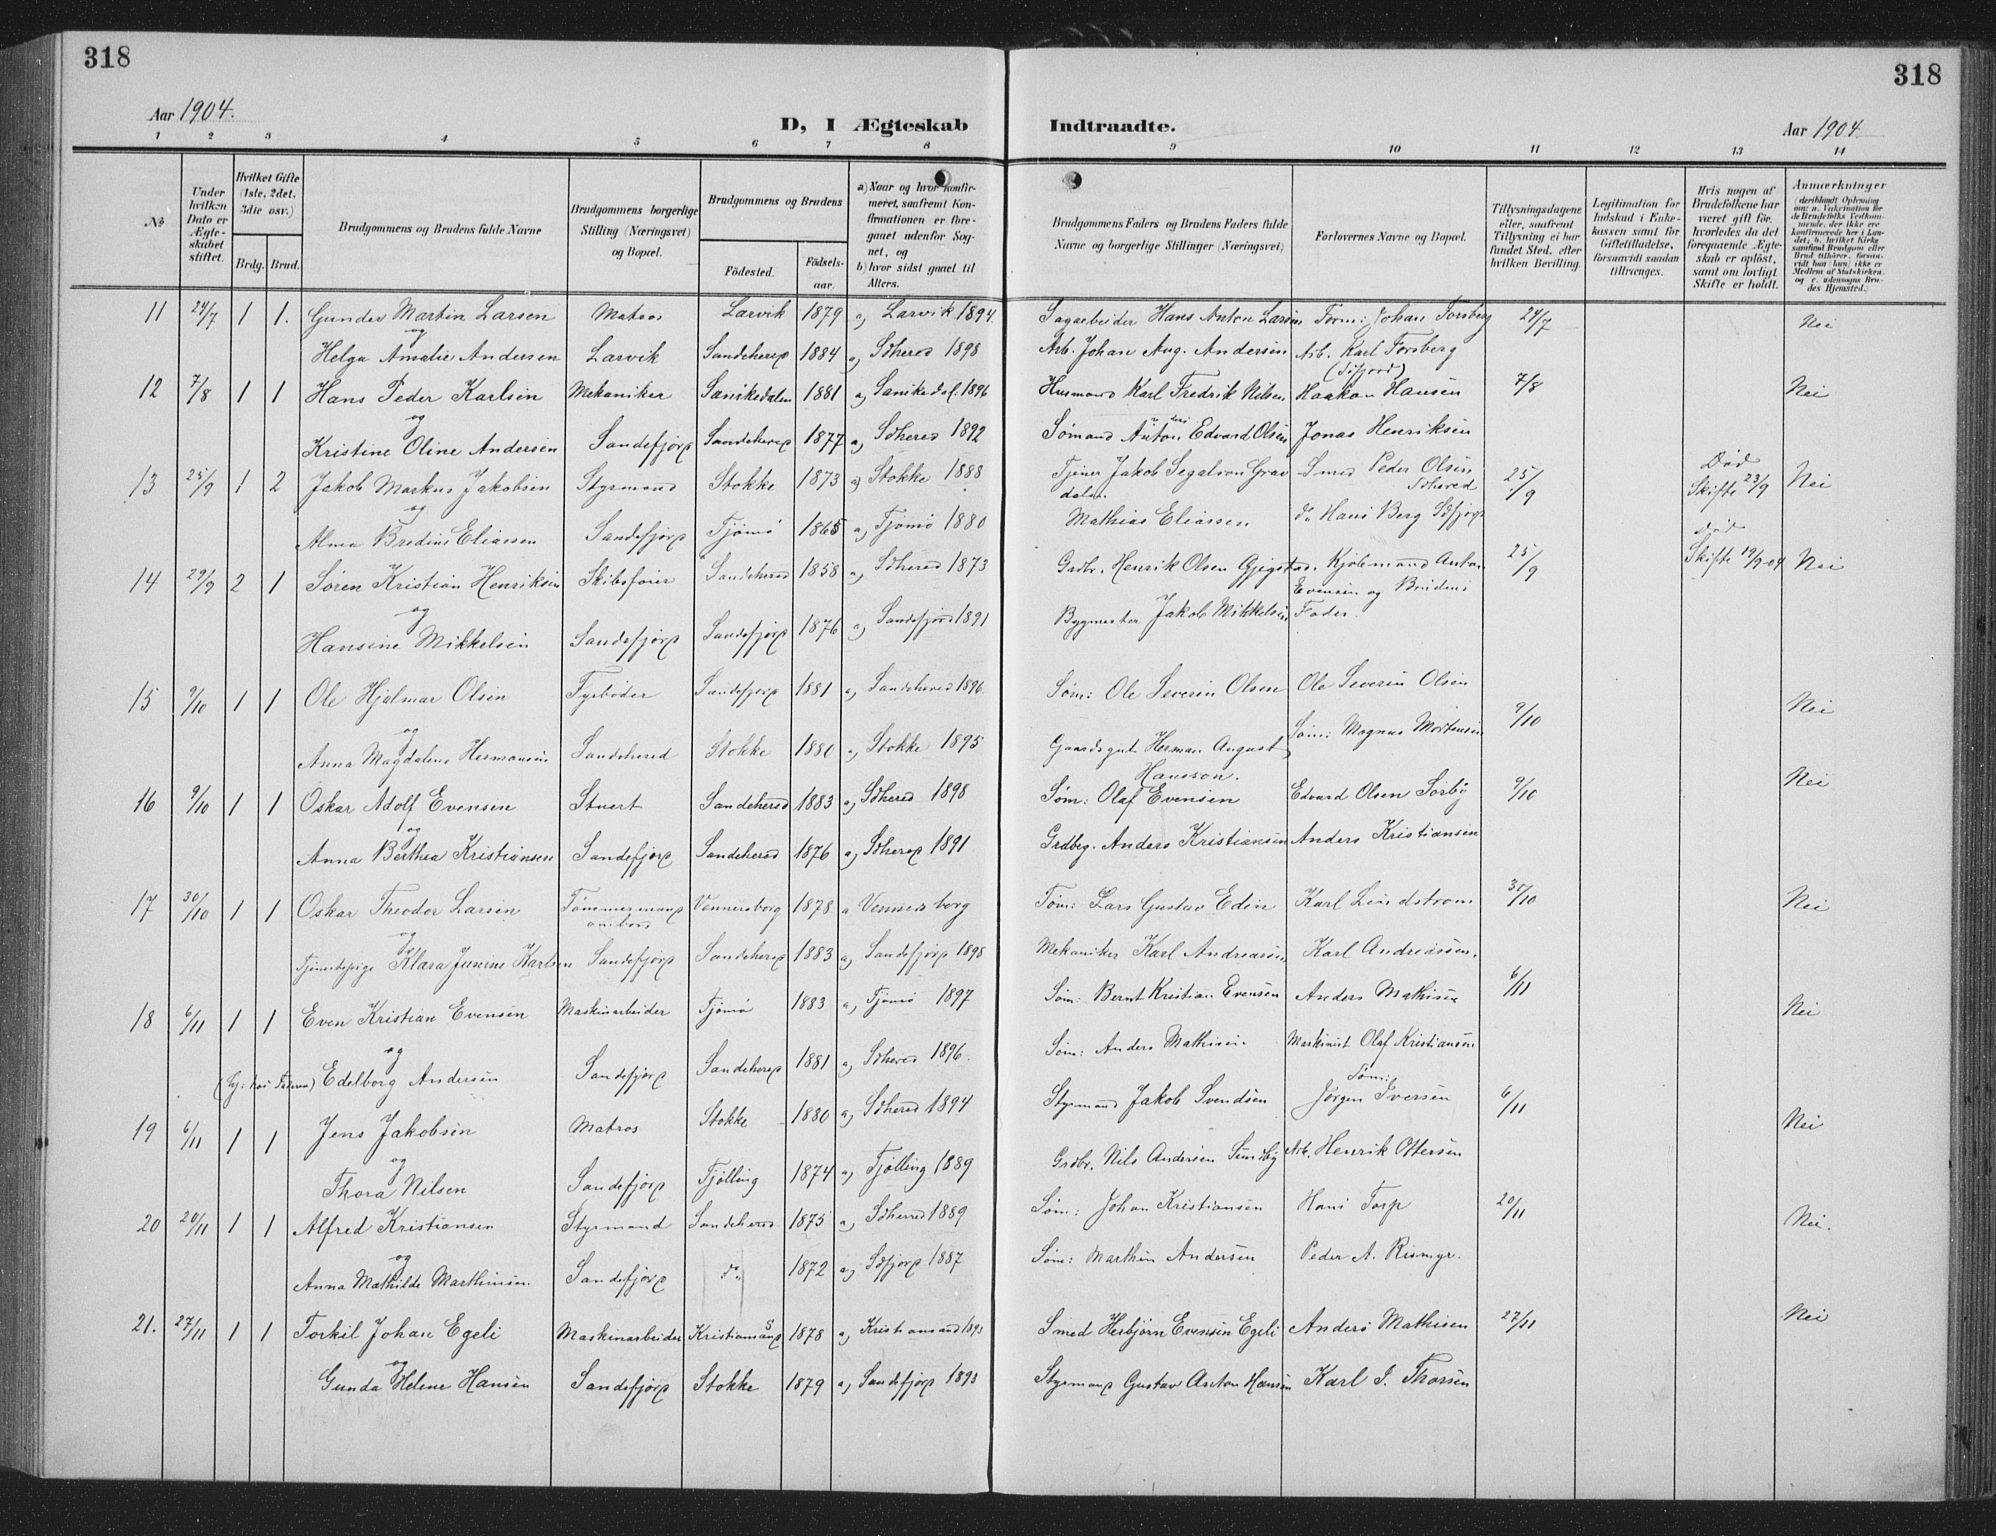 318
318
Aar 1904.
D, I Ægteskab Indtraadte.
Aar 1904
1 2 3 4 5 6 7 8 9 10 11 12 13 14
No
Under hvilken Dato er Ægteskabet stiftet.
Hvilket Gifte (1ste, 2det, 3die osv.)
Brdg. Brud.
Brudgommens og Brudens fulde Navne
Brudgommens borgerlige Stilling (Næringsvei) og Bopæl.
Brudgommens og Brudens
Födested. Födselsaar.
a) Naar og hvor konfirmeret, saafremt Konfirmationen er foregaaet udenfor Sognet, og
b) hvor sidst gaaet til Alters.
Brudgommens Faders og Brudens Faders fulde Navne og borgerlige Stillinger (Næringsvei)
Forlovernes Navne og Bopæl.
Tillysningsdagene eller, saafremt Tillysning ei har fundet Sted, efter hvilken Bevilling.
Legitimation for Indskud i Enkekassen samt for Giftetilladelse, forsaavidt saadan tiltrænges.
Hvis nogen af Brudefolkene har været gift för, hvorledes da det foregaaende Ægteskab er oplöst, samt om lovligt Skifte er holdt.
Anmerkninger (deriblandt Oplysning om: a. Vakcination for de Brudefolks Vedkommende, der ikke ere konfirmerede her i Landet; b. hvilket Kirkesamfund Brudgom eller Brud tilhörer, forsaavidt han (hun) ikke er Medlem af Statskirken, og c. udensogns Brudes Hjemsted.)
11 24/7 1 1. Gunder Martin Larsen Matros Larvik 1879 a) Larvik 1894. Sagarbeider Hans Anton Larsen Tørm: Johan Forsberg 24/7 Nei
og
Helga Amalie Andersen Larvik Sandeherad 1884 a) Sdherad 1898 Arb. Johan Aug. Andersen Arb. Karl Forsberg
12 7/8 1 1 Hans Peder Karlsen Mekaniker Sanikedalen 1881 a) Sanikedal. 1896 Husmand Karl Fredrik Nilsen Haakon Hansen 7/8 Nei
og
Kristine Oline Andersen Sandefjord Sandeherad 1877 a) Sdhered 1892 Sømand Anton Edvard Olsen Jonas Henriksen
13 25/9 1 2 Jakob Markus Jakobsen Styrmand Stokke 1873 a) Stokke 1888 Tjener Jakob Segalson Gravdalen. Smed Peder Olsen Sdhered 25/9 Død Skifte 23/9 Nei
og
Alma Bredine Eliassen Sandefjord Tjømø 1865 a) Tjømø 1880 Mathias Eliassen do Hans Berg Sdfjord
14 29/9 2 1 Søren Kristian Henriksen Skibsfører Sandehered 1858 a) Sdhered 1873 Grdbr. Henrik Olsen Gjigstad. Kjøbmand Anton Evensen og Brudens Fader. 25/9 død Skifte 19/9-04 Nei
og
Hansine Mikkelsen Sandefjord Sandefjord 1876 a) Sandefjord 1891 Bygmester Jakob Mikkelsen
15 9/10 1 1 Ole Hjalmar Olsen Fyrbøder Sandefjord 1881 a) Sandehered 1896. Søm: Ole Severin Olsen Ole Severin Olsen 9/10 Nei
og
Anna Magdalene Hermansen Sandehered Stokke 1880 a) Stokke 1895 Gaardsgut Herman August Hansson. Søm: Magnus Mortensen
16 9/10 1 1 Oskar Adolf Evensen Stuert Sandehered 1883 a) Sdhered 1898 Søm: Olaf Evensen Edvard Olsen Sørby 9/10 Nei
og
Anna Berthea Kristiansen Sandefjord Sandeherad 1876 a) Sdherad 1891 Grdbrg. Anders Kristiansen Anders Kristiansen
17 30/10 1 1 Oskar Theodor Larsen Tømmermand ombord Vennersborg 1878 a Vennersborg Tøm: Lars Gustav Edin Karl Lindstrøm 30/10 Nei
og
Tjenestepige Klara Junine Karlsen Sandefjord Sandeherad 1883 a) Sandefjord 1898 Mekaniker Karl Andreassen Karl Andreassen.
18 6/11 1 1 Even Kristian Evensen Maskinarbeider Tjømø 1883 a) Tjømø 1897 Søm: Bernt Kristian Evensen Anders Mathisen 6/11 Nei
og
Edelborg Andersen Sandefjord Sandeherad 1881 a) Sdhered 1896. Søm: Anders Mathisen Maskinist Olaf Kristiansen
19 6/11 1 1 Jens Jakobsen Matros Stokke 1880 a) Sdhered 1894 Styrmand Jakob Svendsen Søm: Jørgen Iversen 6/11 Nei
og
Thora Nilsen Sandefjord Tjølling 1874 a) Tjølling 1889 Grdbr. Nils Andersen Sundby Arb. Henrik Ottersen
20 20/11 1 1 Alfred Kristiansen Styrmand Sandehered 1875 a) Sdherred 1889 Søm: Johan Kristiansen Hans Torp 20/11 Nei.
og
Anna Mathilde Marthinsen. Sandefjord do 1872 a) Sdfjord 1887 Søm: Marthin Andersen Peder A. Rismyr.
21. 27/11 1 1 Torkil Johan Egeli Maskinarbeider Kristiansand S 1878 a) Kristiansand 1893 Smed Herbjørn Evensen Egeli Anders Mathisen 27/11 Nei
og
Gunda Helene Hansen Sandefjord Stokke 1879 a) Sandefjord 1893 Styrmand Gustav Anton Hansen Karl J. Thorsen